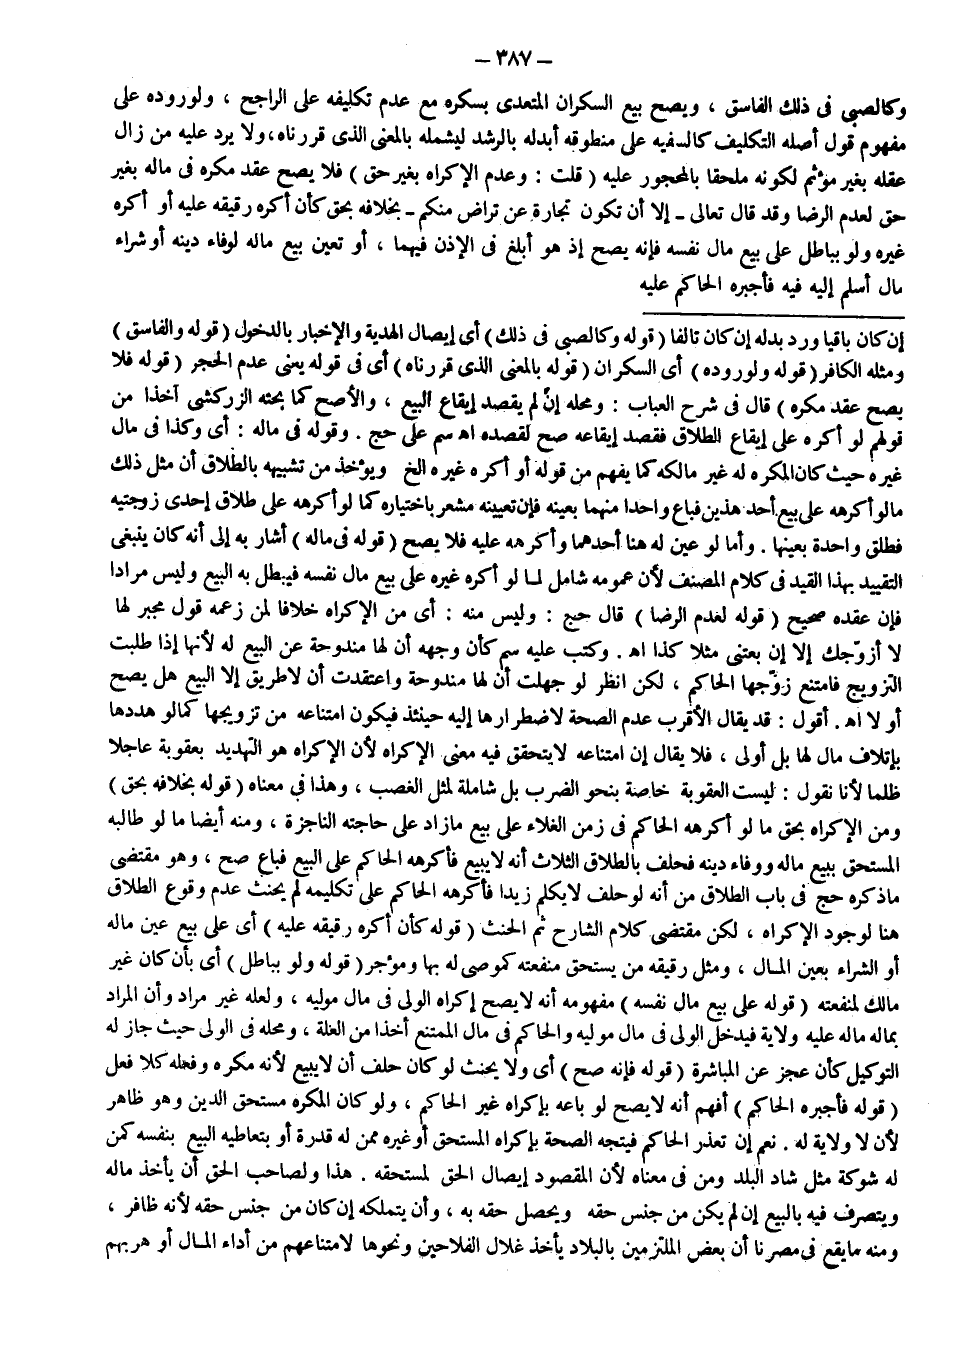 – ٣٨٧ –
وكالصبى فى ذلك الفاسق ، ويصح بيع السكران المتعدى بسكره مع عدم تكليفه على الراجح ، ولوروده على
مفهوم قول أصله التكليف كالسفيه على منطوقه أبدله بالرشد ليشمله بالمعنى الذى قررناه، ولا يرد عليه من زال
عقله بغير مؤثم لكونه ملحقا بالمحجور عليه ( قلت : وعدم الإكراه بغير حق ) فلا يصح عقد مكره فى ماله بغير
حق لعدم الرضا وقد قال تعالى ـ إلا أن تكون تجارة عن تراض منكم ـ بخلافه بحق كأن أكره رقيقه عليه أو أكره
غيره ولو بباطل على بيع مال نفسه فإنه يصح إذ هو أبلغ فى الإذن فيهما ، أو تعين بيع ماله لوفاء دينه أو شراء
مال أسلم إليه فيه فأجبره الحاكم عليه
إن كان باقيا ورد بدله إن كان تالفا ( قوله وكالصبى فى ذلك ) أى إيصال الهدية والإخبار بالدخول ( قوله والفاسق )
ومثله الكافر ( قوله ولوروده ) أى السكران ( قوله بالمعنى الذى قررناه ) أى فى قوله يعنى عدم الحجر ( قوله فلا
يصح عقد مكره ) قال فى شرح العباب : ومحله إن لم يقصد إيقاع البيع ، والأصح كما بحثه الزركشى آخذا من
قولهم لو أكره على إيقاع الطلاق فقصد إيقاعه صح لقصده اه سم على حج . وقوله فى ماله : أى وكذا فى مال
غيره حيث كان المكره له غير مالكه كما يفهم من قوله أو أكره غيره الخ ويؤخذ من تشبيهه بالطلاق أن مثل ذلك
مالو أكرهه على بيع أحد هذين فباع واحدا منهما بعينه فإن تعيينه مشعر باختياره كما لو أكرهه على طلاق إحدى زوجتيه
فطلق واحدة بعينها . وأما لو عين له هنا أحدهما وأكرهه عليه فلا يصح ( قوله فى ماله ) أشار به إلى أنه كان ينبغى
التقييد بهذا القيد فى كلام المصنف لأن عمومه شامل لما لو أكره غيره على بيع مال نفسه فيبطل به البيع وليس مرادا
فإن عقده صحيح ( قوله لعدم الرضا ) قال حج : وليس منه : أى من الإكراه خلافا لمن زعمه قول مجبر لها
لا أزوّجك إلا إن بعتنى مثلا كذا اه . وكتب عليه سم كأن وجهه أن لها مندوحة عن البيع له لأنها إذا طلبت
التزويج فامتنع زوّجها الحاكم ، لكن انظر لو جهلت أن لها مندوحة واعتقدت أن لا طريق إلا البيع هل يصح
أو لا اه . أقول : قد يقال الأقرب عدم الصحة لاضطرارها إليه حينئذ فيكون امتناعه من تزويجها كما لو هددها
بإتلاف مال لها بل أولى ، فلا يقال إن امتناعه لا يتحقق فيه معنى الإكراه لأن الإكراه هو التهديد بعقوبة عاجلا
ظلما لأنا نقول : ليست العقوبة خاصة بنحو الضرب بل شاملة لمثل الغصب ، وهذا فى معناه ( قوله بخلافه بحق )
ومن الإكراه بحق ما لو أكرهه الحاكم فى زمن الغلاء على بيع مازاد على حاجته الناجزة ، ومنه أيضا ما لو طالبه
المستحق ببيع ماله ووفاء دينه فحلف بالطلاق الثلاث أنه لا يبيع فأكرهه الحاكم على البيع فباع صح ، وهو مقتضى
ماذكره حج فى باب الطلاق من أنه لو حلف لا يكلم زيدا فأكرهه الحاكم على تكليمه لم يحنث عدم وقوع الطلاق
هنا لوجود الإكراه ، لكن مقتضى كلام الشارح ثم الحنث ( قوله كأن أكره رقيقه عليه ) أى على بيع عين ماله
أو الشراء بعين المال ، ومثل رقيقه من يستحق منفعته كموصى له بها ومؤجر ( قوله ولو بباطل ) أى بأن كان غير
مالك لمنفعته ( قوله على بيع مال نفسه ) مفهومه أنه لا يصح إكراه الولى فى مال موليه ، ولعله غير مراد وأن المراد
بماله ماله عليه ولاية فيدخل الولى فى مال موليه والحاكم فى مال الممتنع أخذا من العلة ، ومحله فى الولى حيث جاز له
التوكيل كأن عجز عن المباشرة ( قوله فإنه صح ) أى ولا يحنث لو كان حلف أن لا يبيع لأنه مكره وفعله كلا فعل
( قوله فأجبره الحاكم ) أفهم أنه لا يصح لو باعه بإكراه غير الحاكم ، ولو كان المكره مستحق الدين وهو ظاهر
لأن لا ولاية له . نعم إن تعذر الحاكم فيتجه الصحة بإكراه المستحق أو غيره ممن له قدرة أو بتعاطيه البيع بنفسه كمن
له شوكة مثل شاد البلد ومن فى معناه لأن المقصود إيصال الحق لمستحقه . هذا ولصاحب الحق أن يأخذ ماله
ويتصرف فيه بالبيع إن لم يكن من جنس حقه ويحصل حقه به ، وأن يتملكه إن كان من جنس حقه لأنه ظافر ،
ومنه مايقع فى مصرنا أن بعض الملتزمين بالبلاد يأخذ غلال الفلاحين ونحوها لامتناعهم من أداء المال أو هربهم